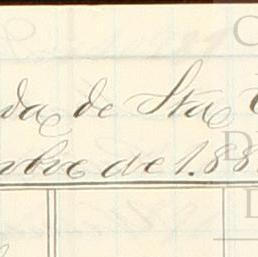 da de Sta C
mbre de 1.88